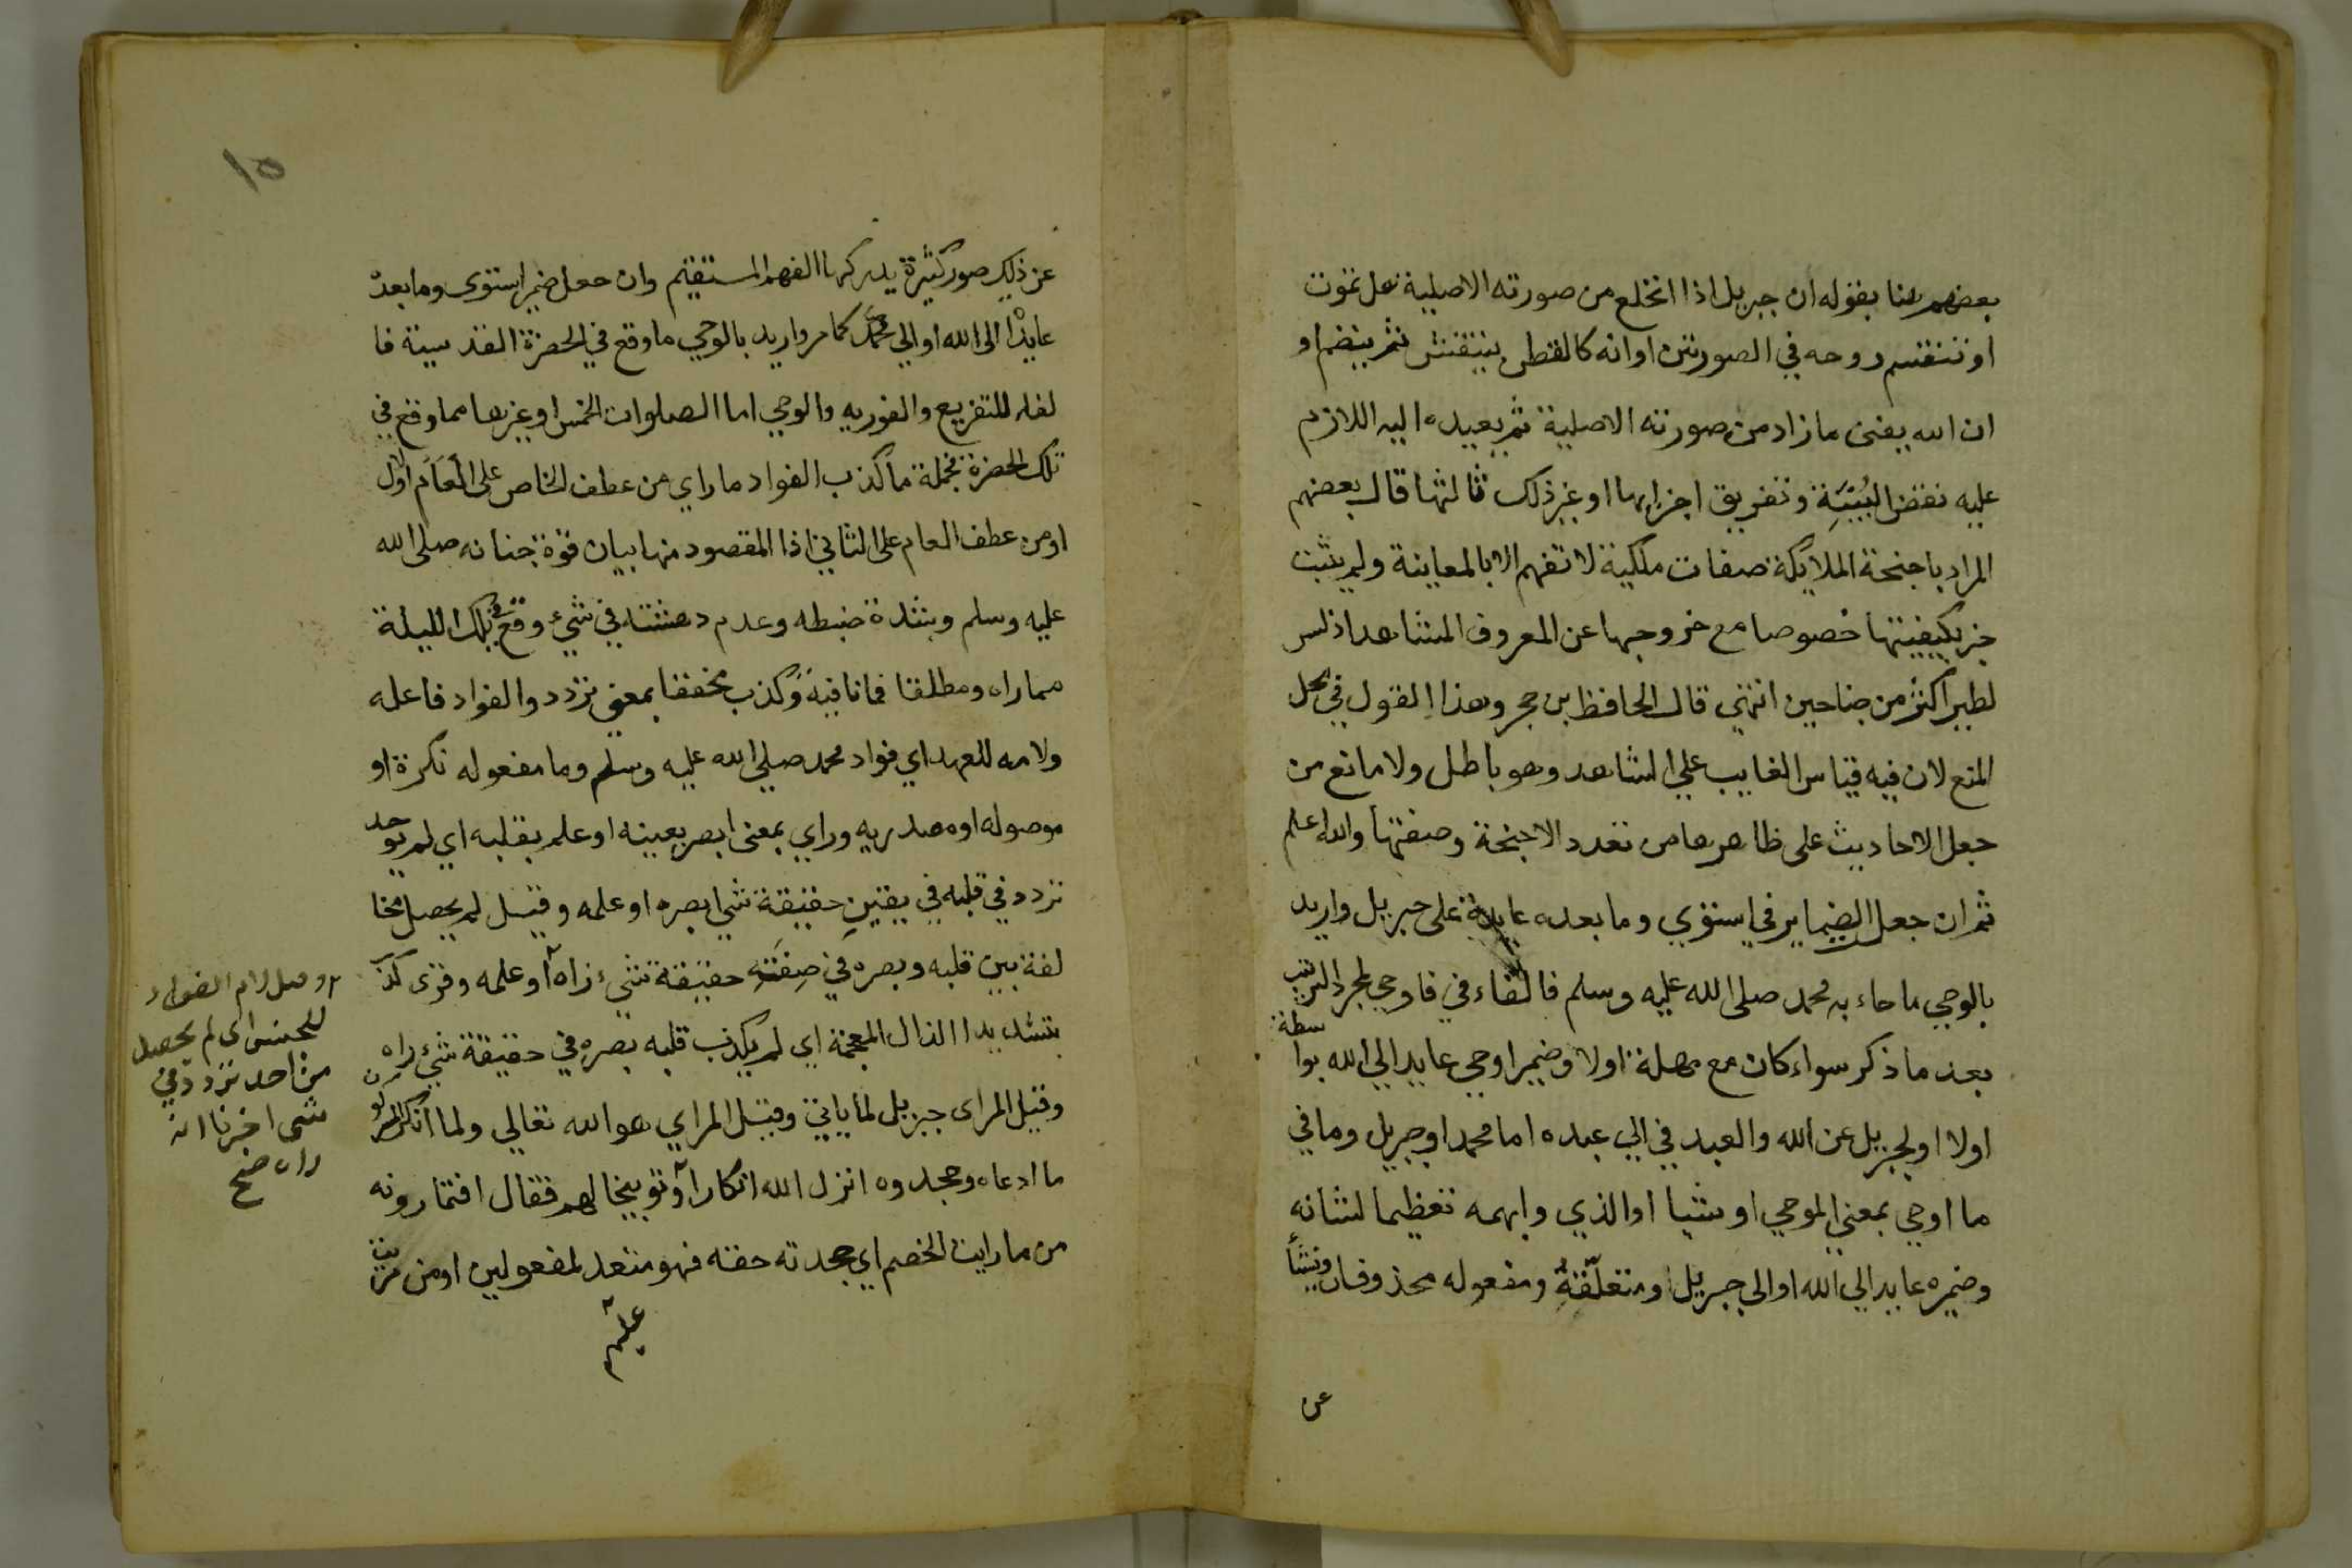 بعضهم هنا بقوله ان جبريل اذا انخلع من صورته الاصلية هل تموت
او تنقسم روحه في الصورتين او انه كالقطن ينتفش ثم ينضم او
ان الله يفنى ما زاد من صورته الاصلية ثم يعيده اليه اللازم
عليه نقض البُنيَةِ وتفريق اجزايها او غير ذلك ثالثها قال بعضهم
المراد باجنحة الملايكة صفات ملكية لا تفهم الا بالمعاينة ولم يثبت
خبر بكيفيتها خصوصا مع خروجها عن المعروف المشاهد اذ ليس
لطير اكثر من جناحين انتهي قال الحافظ بن حجر وهذا القول في محل
المنع لان فيه قياس الغايب علي الشاهد وهو باطل ولا مانع من
حمل الاحاديث على ظاهرها من تعدد الاجنحة وصفتها والله اعلم
ثم ان جعل الضماير في استوي وما بعده عايدة على جبريل واريد
بالوحي ما جاء به محمد صلى الله عليه وسلم فالفاء في فاوحي لمجرد الترتيب
بعد ما ذكر سواء كان مع مهلة اولا وضمير اوحي عايد الي الله بواسطة
اولا او لجبريل عن الله والعبد في الي عبده اما محمد او جبريل وما في
ما اوحي بمعني الموحي او شيا او الذي وابهمه تعظيما لشانه
وضميره عايد الي الله او الي جبريل ومتعلّقةٌ ومفعوله محذوفان وينشأ
عن
١٥
عن ذلك صور كثيرة يدركها الفهم المستقيم وان جعل ضمير استوى وما بعده
عايدًا الى الله او الي محمد كما مر واريد بالوحي ما وقع في الحضرة القدسية فا
لفاء للتفريع والفوريه والوحي اما الصلوات الخمس او غيرها مما وقع في
تلك الحضرة فجملة ما كذب الفواد ما راي من عطف الخاص على العَام اولا
او من عطف العام على الثاني اذا المقصود منها بيان قوة جنانه صلى الله
عليه وسلم وشدة ضبطه وعدم دهشته في شيء وقع في تلك الليلة
مما راه ومطلقا فما نافية وكذب مخففا بمعني تردد والفواد فاعله
ولامه للعهد اي فواد محمد صلي الله عليه وسلم وما مفعوله نكرة او
موصوله او مصدريه وراي بمعنى ابصر بعينه او علم بقلبه اي لم يوجد
تردد في قلبه في يقينِ حقيقة شي ابصره او علمه وقيل لم يحصل مخا
لفة بين قلبه وبصره في صِفَتهِ حقيقة شيء راه او علمه وقرى كذب
بتشديد الذال المعجمة اي لم يكذب قلبه بصره في حقيقة شيء راه
وقيل المراى جبريل لما ياتي وقيل المراي هو الله تعالي ولما انكر المشركون
ما ادعاه وجحدوه انزل الله انكارا وتوبيخا لهم فقال افتمارونه
من ماريت الخصم اي جحدته حقه فهو متعد لمفعولين او من مريت
عليهم
وقيل لام الفواد
للجنس اى لم يحصل
من احد تردد في
شي اخبرنا انه
راه صح